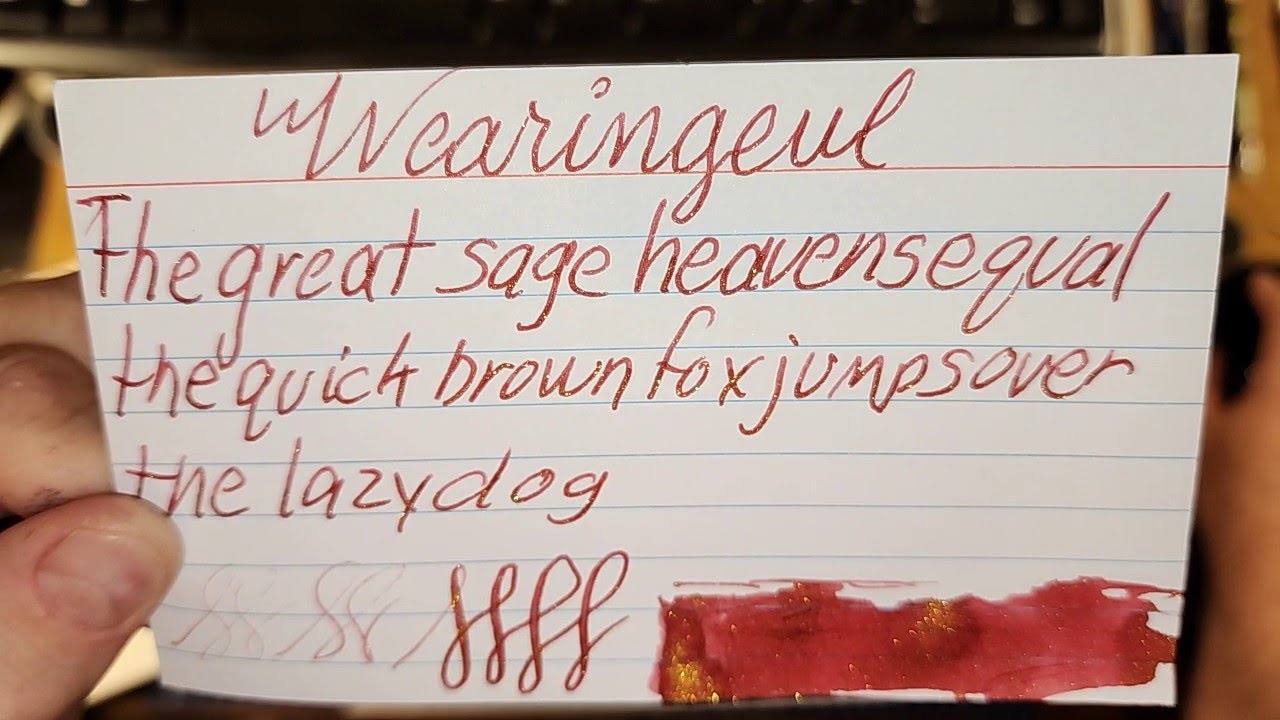 Wearingeul
The great sage heavens equal
the quick brown fox jumps over
the lazy dog